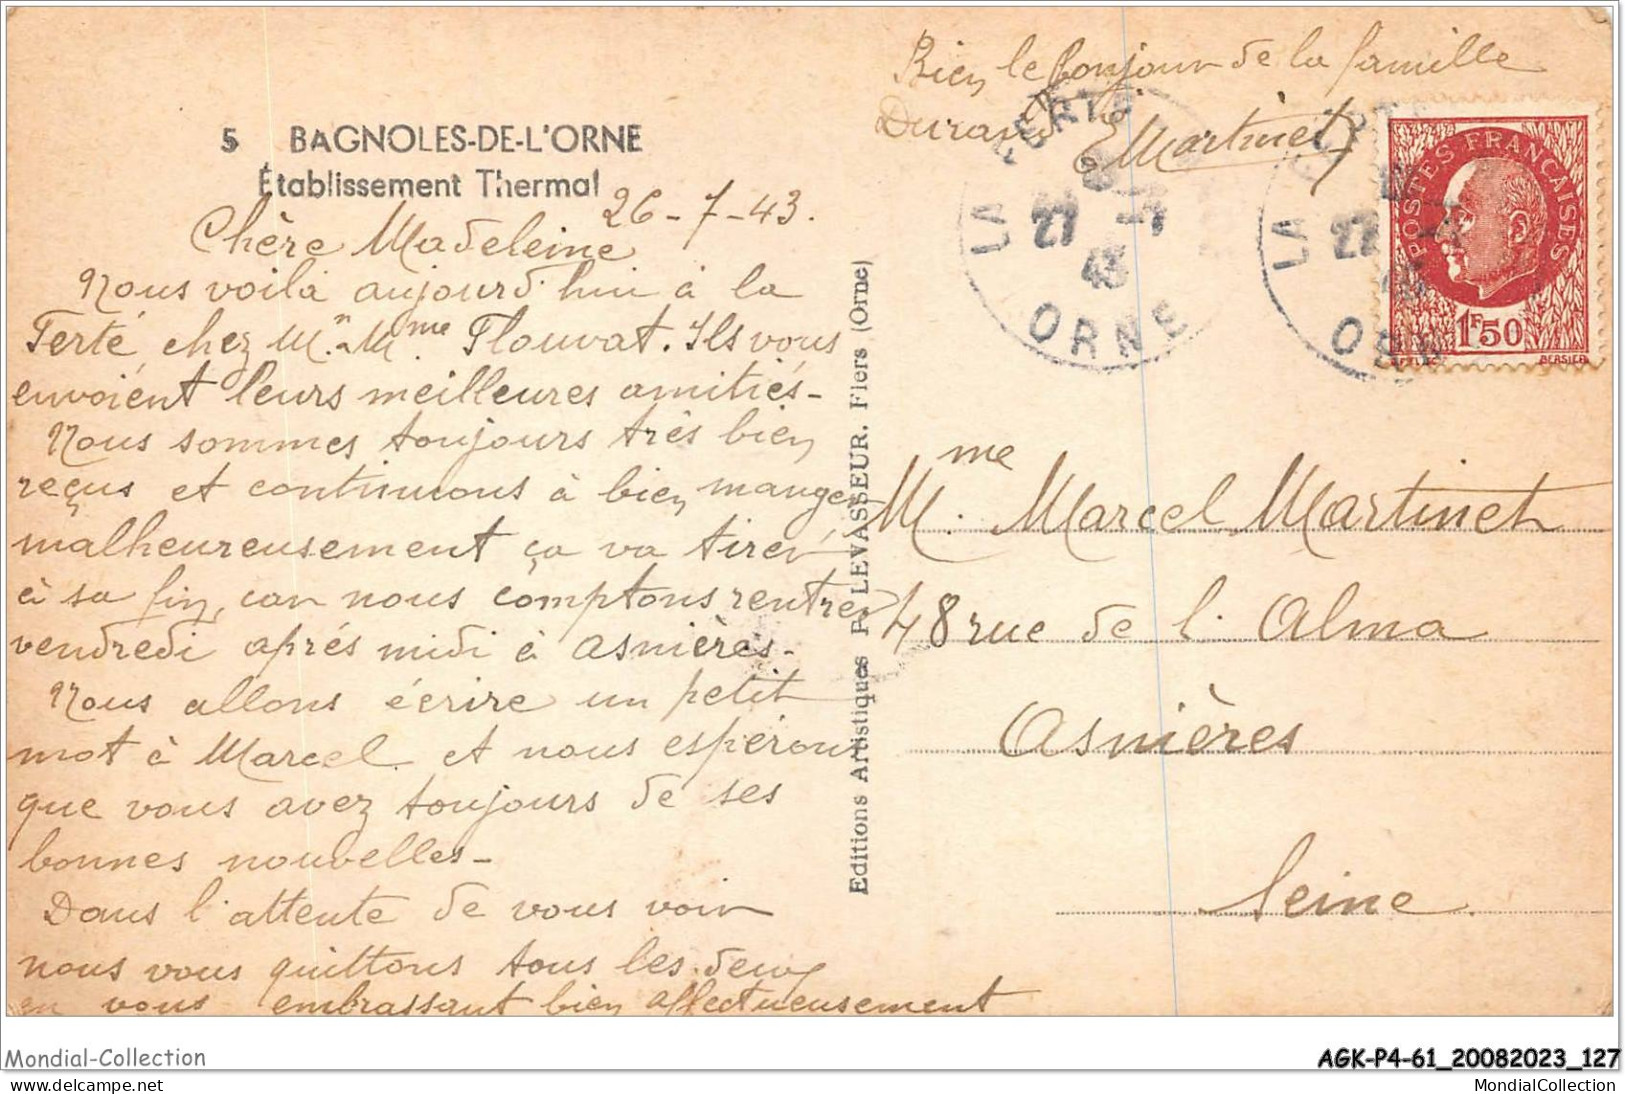 5 BAGNOLES-DE-L'ORNE
Établissement Thermal
26-7-43.
Chère Madeleine
Nous voilà aujourd'hui à la
Ferté chez Mr. Mme Plouvat. Ils vous
envoient leurs meilleures amitiés-
Nous sommes toujours très bien
reçus et continuons à bien manger
malheureusement ça va tirer
à sa fin, car nous comptons rentrer
vendredi après midi à Asnières-
Nous allons écrire un petit
mot à Marcel et nous espérons
que vous avez toujours de ses
bonnes nouvelles-
Dans l'attente de vous voir
nous vous quittons tous les deux
en vous embrassant bien affectueusement
Editions Artistiques P. LEVASSEUR. Flers (Orne)
Bien le bonjour de la famille
Durand EMartinet
LA FERTE
27 -7
43
ORNE
LA
27
ORNE
POSTES FRANÇAISES
1F50
BERSIER
Mme. Marcel Martinet
48 rue de l'Alma
Asnières
Seine.
Mondial-Collection
AGK-P4-61_20082023_127
delcampe.net
MondialCollection